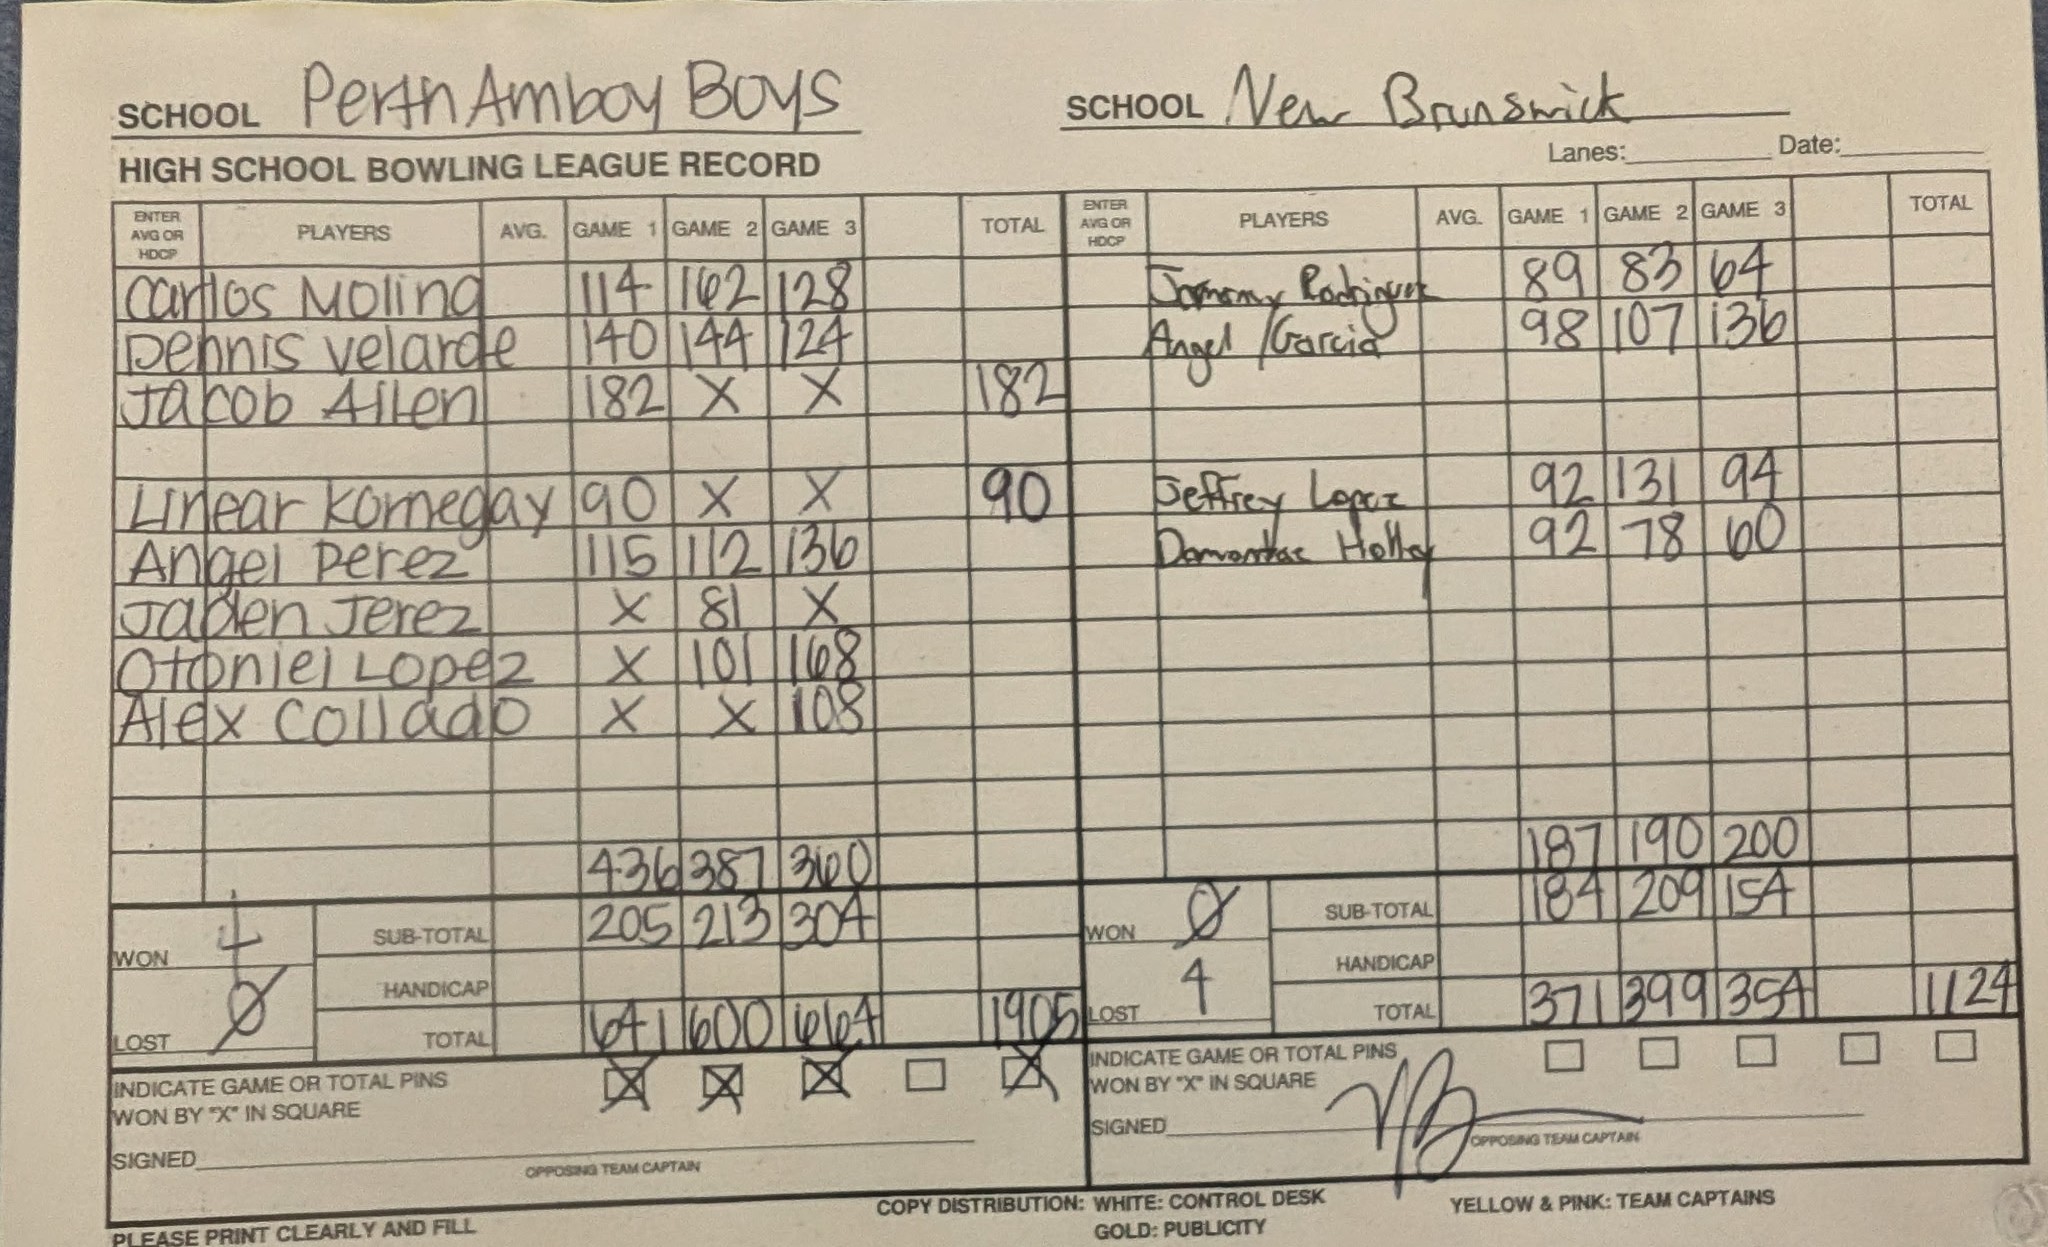 SCHOOL Perth Amboy Boys
SCHOOL New Brunswick
HIGH SCHOOL BOWLING LEAGUE RECORD
Lanes: Date:
ENTER AVG OR HDCP PLAYERS AVG. GAME 1 GAME 2 GAME 3 TOTAL ENTER AVG OR HDCP PLAYERS AVG. GAME 1 GAME 2 GAME 3 TOTAL
Carlos Molina 114 162 128 Rodriguez 89 83 64
Dennis Velarde 140 144 124 Angel Garcia 98 107 136
Jacob Allen 182 X X 182
Linear Kornegay 90 X X 90 Jeffrey Lopez 92 131 94
Angel Perez 115 112 136 92 78 60
Jaden Jerez X 81 X
Otoniel Lopez X 101 168
Alex Collado X X 108
436 387 360 187 190 200
WON 4 SUB-TOTAL 205 213 304 WON 0 SUB-TOTAL 184 209 154
HANDICAP HANDICAP
LOST 0 TOTAL 641 600 664 1905 LOST 4 TOTAL 371 399 354 1124
INDICATE GAME OR TOTAL PINS WON BY "X" IN SQUARE X X X X
INDICATE GAME OR TOTAL PINS WON BY "X" IN SQUARE
SIGNED
OPPOSING TEAM CAPTAIN
SIGNED
OPPOSING TEAM CAPTAIN
COPY DISTRIBUTION: WHITE: CONTROL DESK YELLOW & PINK: TEAM CAPTAINS
PLEASE PRINT CLEARLY AND FILL GOLD: PUBLICITY